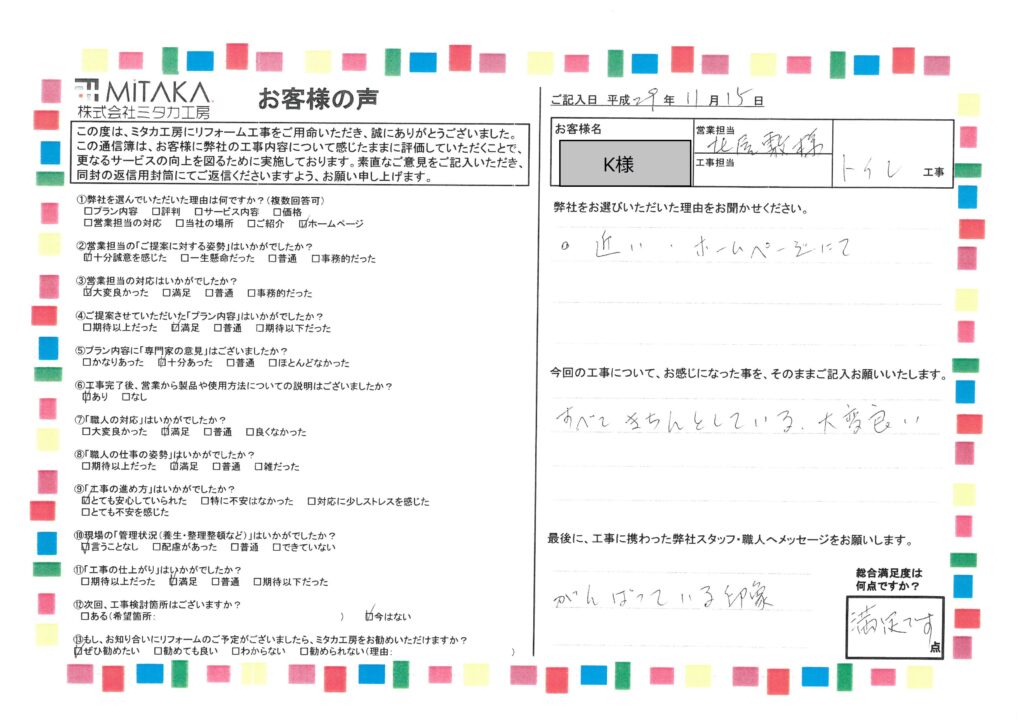 MiTAKA
株式会社ミタカ工房
お客様の声
この度は、ミタカ工房にリフォーム工事をご用命いただき、誠にありがとうございました。
この通信簿は、お客様に弊社の工事内容について感じたままに評価していただくことで、
更なるサービスの向上を図るために実施しております。素直なご意見をご記入いただき、
同封の返信用封筒にてご返信くださいますよう、お願い申し上げます。
①弊社を選んでいただいた理由は何ですか？(複数回答可)
□プラン内容 □評判 □サービス内容 □価格
□営業担当の対応 □当社の場所 □ご紹介 ☑ホームページ
②営業担当の「ご提案に対する姿勢」はいかがでしたか？
☑十分誠意を感じた □一生懸命だった □普通 □事務的だった
③営業担当の対応はいかがでしたか？
☑大変良かった □満足 □普通 □事務的だった
④ご提案させていただいた「プラン内容」はいかがでしたか？
□期待以上だった ☑満足 □普通 □期待以下だった
⑤プラン内容に「専門家の意見」はございましたか？
□かなりあった ☑十分あった □普通 □ほとんどなかった
⑥工事完了後、営業から製品や使用方法についての説明はございましたか？
☑あり □なし
⑦「職人の対応」はいかがでしたか？
□大変良かった ☑満足 □普通 □良くなかった
⑧「職人の仕事の姿勢」はいかがでしたか？
□期待以上だった ☑満足 □普通 □雑だった
⑨「工事の進め方」はいかがでしたか？
☑とても安心していられた □特に不安はなかった □対応に少しストレスを感じた
□とても不安を感じた
⑩現場の「管理状況(養生・整理整頓など)」はいかがでしたか？
☑言うことなし □配慮があった □普通 □できていない
⑪「工事の仕上がり」はいかがでしたか？
□期待以上だった ☑満足 □普通 □期待以下だった
⑫次回、工事検討箇所はございますか？
□ある(希望箇所: ) ☑今はない
⑬もし、お知り合いにリフォームのご予定がございましたら、ミタカ工房をお勧めいただけますか？
☑ぜひ勧めたい □勧めても良い □わからない □勧められない(理由: )
ご記入日 平成29年11月15日
お客様名
K様
営業担当
北屋敷様
工事担当
トイレ 工事
弊社をお選びいただいた理由をお聞かせください。
。近い・ホームページにて
今回の工事について、お感じになった事を、そのままご記入お願いいたします。
すべてきちんとしている、大変良い
最後に、工事に携わった弊社スタッフ・職人へメッセージをお願いします。
がんばっている印象
総合満足度は
何点ですか？
満足です
点